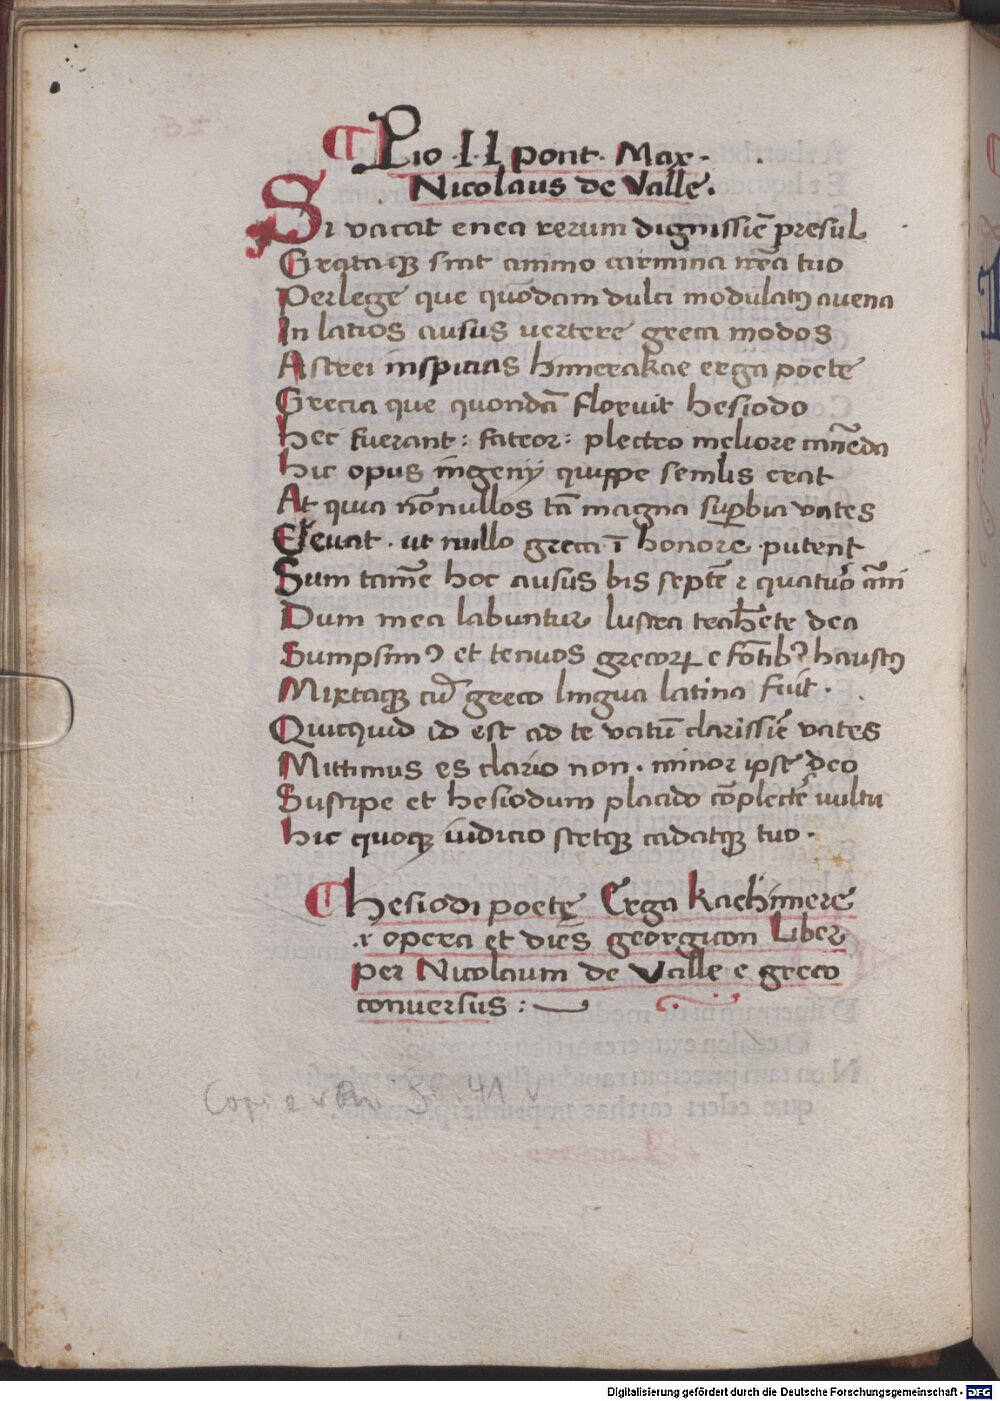 Pio · I · I pont · Max ·
Nicolaus de Valle .
Si vacat enea rerum dignissīe presul
Grataqꝫ sint animo carmina nr̄a tuo
Perlege que quōdam dulci modulatꝰ auena
In latios ausus uertere greca modos
Astrei inspicias himerakae erga poete
Grecia que quondā floruit hesiodo
hec fuerant : fateor : plectro meliore canēda
hic opus ingenij quippe senilis erat
At quia nōnullos tā magna suꝑbia vates
Eleuat . ut nullo greca ī honore putent
Sum tamē hoc ausus bis septē ⁊ quatuor āni
Dum mea labuntur lustra trahēte dea
Sumpsimꝰ et tenuos grecoꝝ e fōtibꝰ haustꝰ
Mixtaqꝫ cū greco lingua latina fuit .
Quicquid id est ad te vatū clarissīe vates
Mittimus es clario non . minor ipse deo
Suscipe et hesiodum placido cōplectere uultu
hic quoqꝫ iudicio stetqꝫ cadatqꝫ tuo .
hesiodi poetę Erga kaehimere
.⁊ opera et dies georgicon Liber
per Nicolaum de Valle e greco
conuersus :
Digitalisierung gefördert durch die Deutsche Forschungsgemeinschaft - DFG